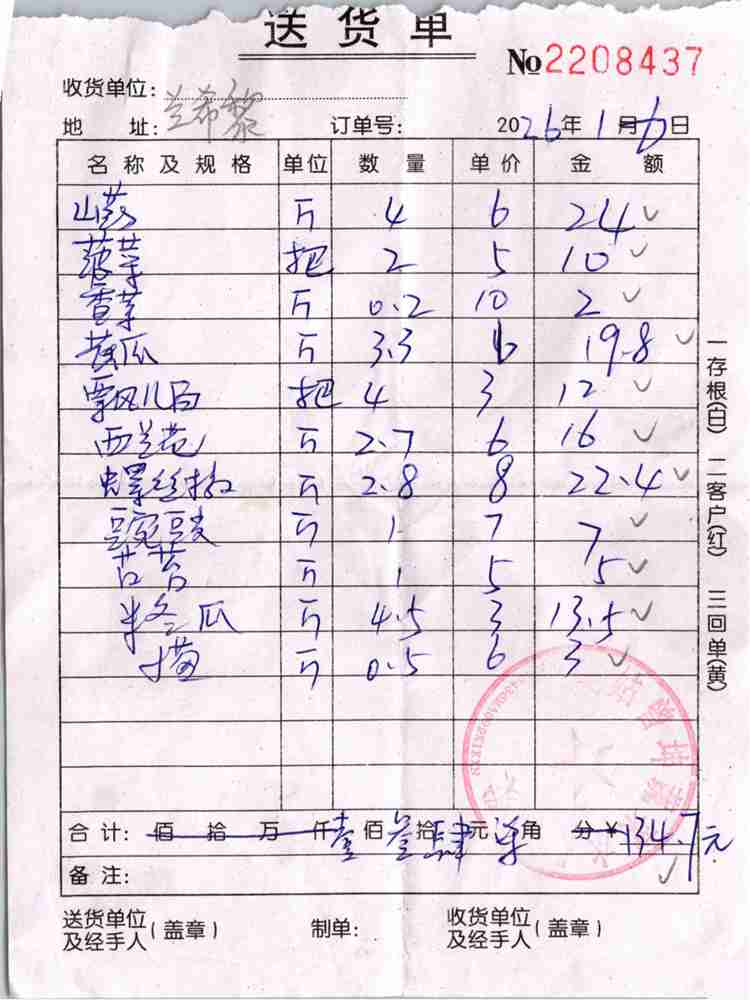 送货单
№2208437
收货单位:
地 址: 兰希黎 订单号: 2026年1月6日
名称及规格 单位 数量 单价 金额
山药 斤 4 6 24
菠菜 把 2 5 10
香菜 斤 0.2 10 2
黄瓜 斤 3.3 6 19.8
瓢儿白 把 4 3 12
西兰花 斤 2.7 6 16
螺丝椒 斤 2.8 8 22.4
豌豆 斤 1 7 7
斤 1 5 5
冬瓜 斤 4.5 3 13.5
斤 0.5 6 3
合计: 佰拾万仟壹佰叁拾肆元柒角分¥134.7元
备注:
送货单位及经手人(盖章) 制单: 收货单位及经手人(盖章)
一存根(白) 二客户(红) 三回单(黄)